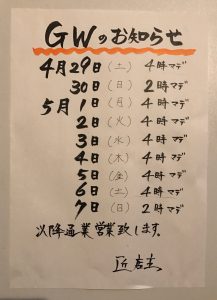 GWのお知らせ
4月29日(土) 4時マデ
30日(日) 2時マデ
5月1日(月) 4時マデ
2日(火) 4時マデ
3日(水) 4時マデ
4日(木) 4時マデ
5日(金) 4時マデ
6日(土) 4時マデ
7日(日) 2時マデ
以降通業営業致します。
匠 店主